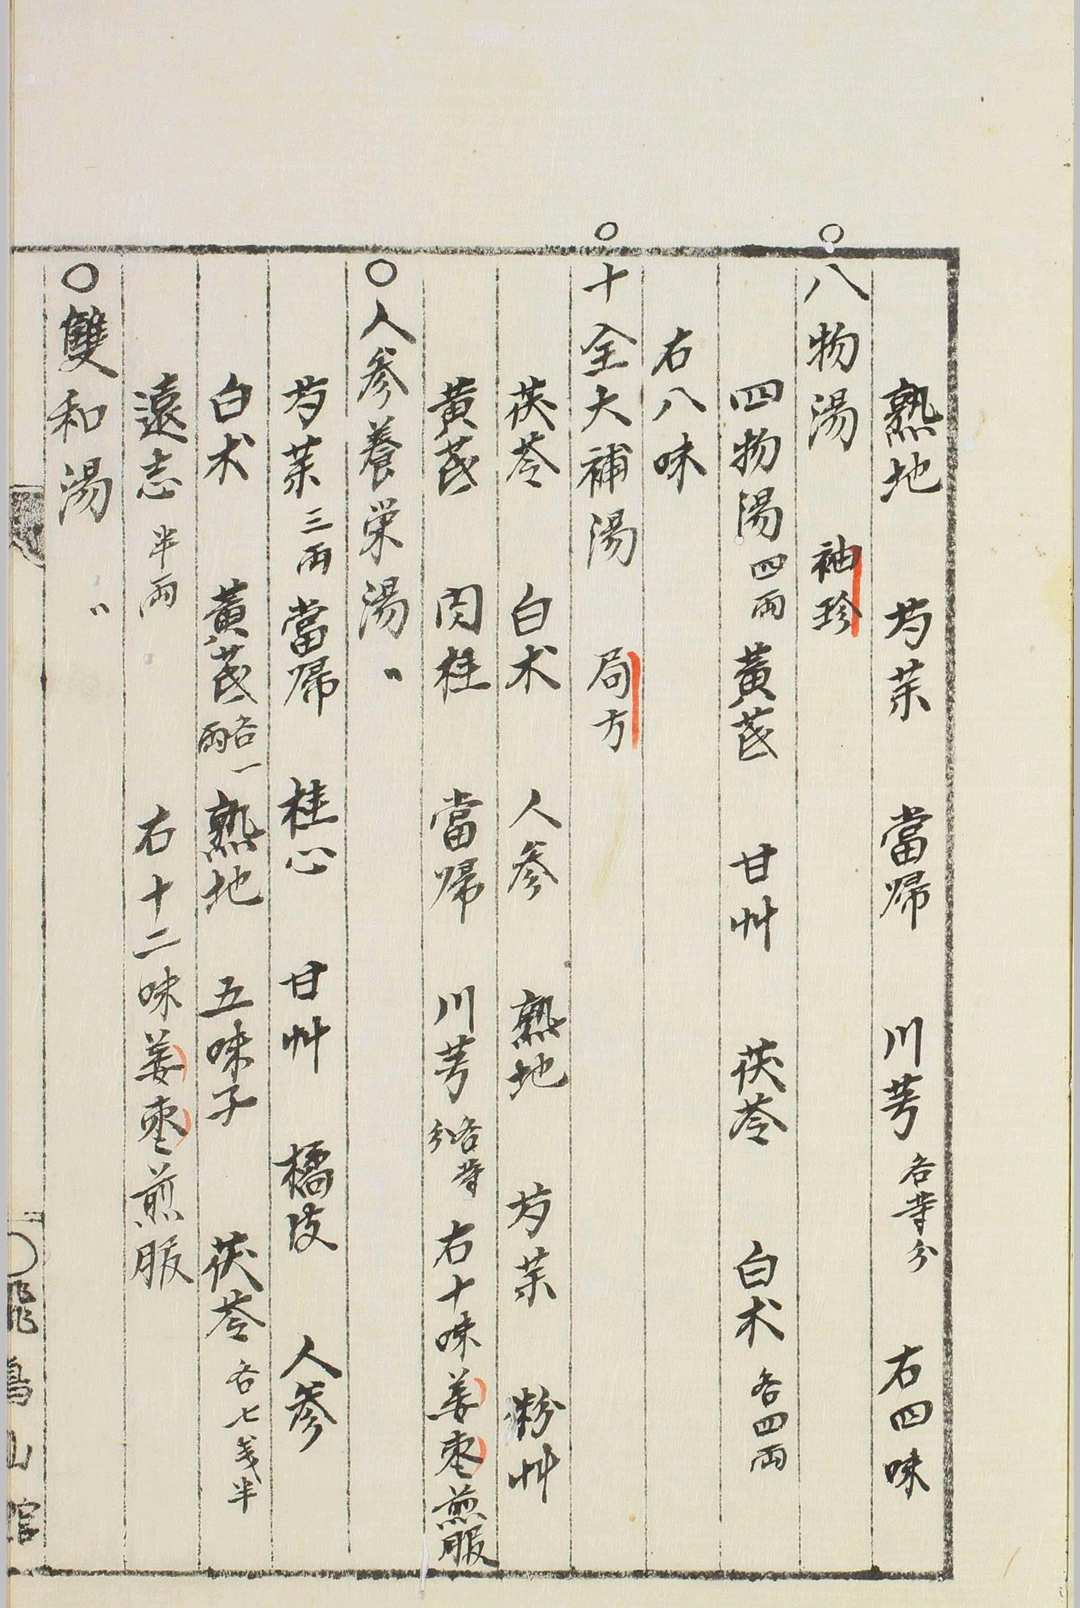 熟地 芍薬 當帰 川芎 各等分 右四味
○八物湯 袖珍
四物湯 四両 黄芪 甘艸 茯苓 白朮 各四両
右八味
○十全大補湯 局方
茯苓 白朮 人參 熟地 芍薬 粉艸
黄芪 肉桂 當帰 川芎 各等分 右十味姜棗煎服
○人參養栄湯 〃
芍薬 三両 當帰 桂心 甘艸 橘皮 人參
白朮 黄芪 各一両 熟地 五味子 茯苓 各七戔半
遠志 半両 右十二味姜棗煎服
○雙和湯 〃
飛鳥山館